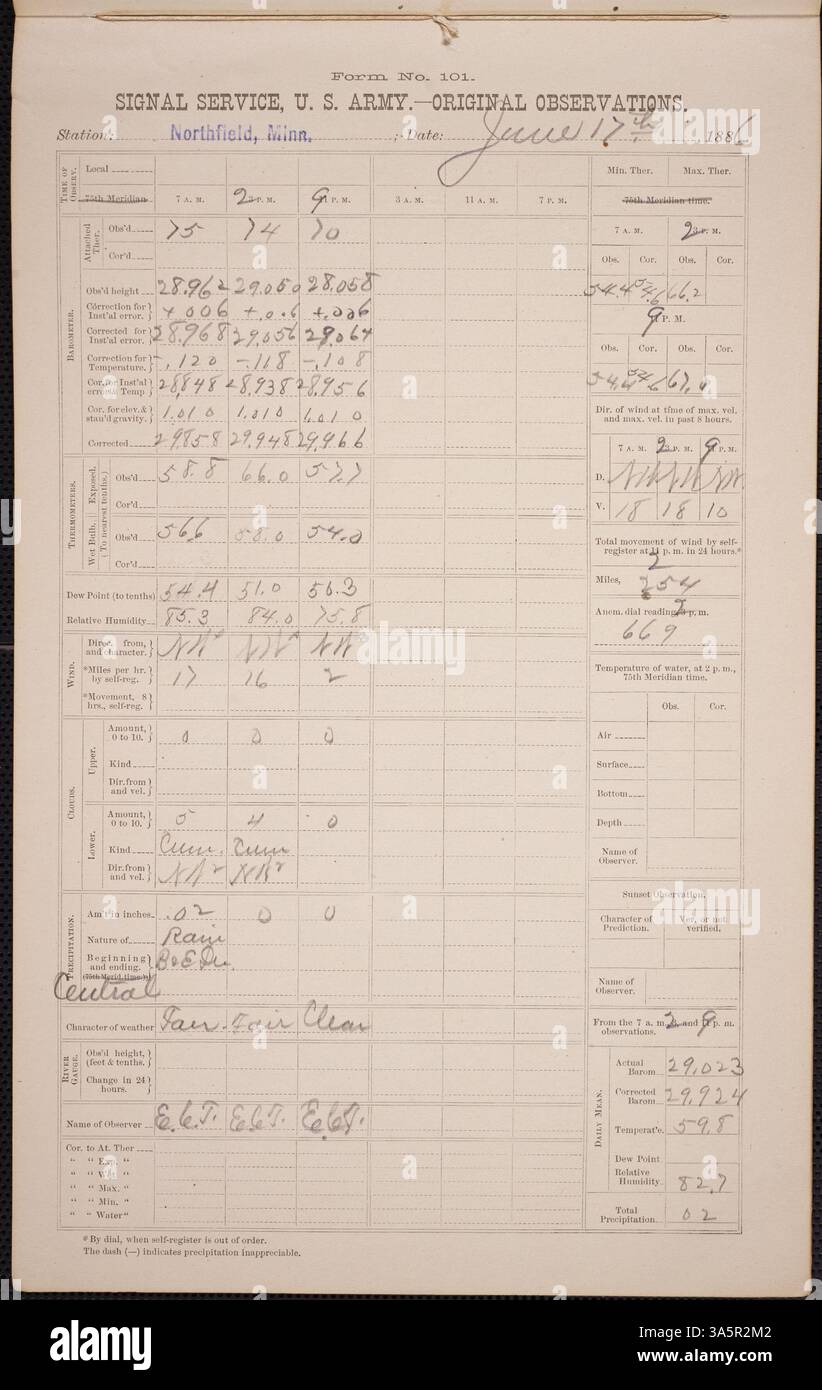 Form No. 101.
SIGNAL SERVICE, U. S. ARMY.—ORIGINAL OBSERVATIONS.
Station: Northfield, Minn. ; Date: June 17th, 1886
TIME OF OBSERV.
Local
75th Meridian 7 A. M. 2 P. M. 9 P. M. 3 A. M. 11 A. M. 7 P. M.
BAROMETER.
Attached Ther.
Obs'd 75 74 70
Cor'd
Obs'd height 28.962 29.050 28.058
Correction for Inst'al error. +.006 +.006 +.006
Corrected for Inst'al error. 28.968 29.056 29.064
Correction for Temperature. -.120 -.118 -.108
Cor. for Inst'al error & Temp 28.848 28.938 28.956
Cor. for elev. & stan'd gravity. 1.010 1.010 1.010
Corrected 29.858 29.948 29.966
THERMOMETERS.
Exposed.
(To nearest tenths.)
Obs'd 58.8 66.0 57.7
Cor'd
Wet Bulb.
Obs'd 56.6 58.0 54.0
Cor'd
Dew Point (to tenths) 54.4 51.0
Relative Humidity 85.3 84.0 75.8
WIND.
Direc. from, and character. NW NW NW
*Miles per hr. by self-reg. 17 16 2
*Movement, 8 hrs., self-reg.
CLOUDS.
Upper.
Amount, 0 to 10. 0 0 0
Kind
Dir. from and vel.
Lower.
Amount, 0 to 10. 5 4 0
Kind Cum. Cum
Dir. from and vel.
PRECIPITATION.
Am't in inches .02 0 0
Nature of Rain
Beginning and ending.
(75th Merid. time.)
Central
Character of weather Fair. Fair Clear
RIVER GAUGE.
Obs'd height, (feet & tenths.)
Change in 24 hours.
Name of Observer E.C.T. E.C.T. E.C.T.
Cor. to At. Ther
" " Exp. "
" " Wet "
" " Max. "
" " Min. "
" " Water"
*By dial, when self-register is out of order.
The dash (—) indicates precipitation inappreciable.
Min. Ther. Max. Ther.
75th Meridian time.
7 A. M. 2 P. M.
Obs. Cor. Obs. Cor.
54.4 54.6 66.2
9 P. M.
Obs. Cor. Obs. Cor.
54.4 54.6 67.0
Dir. of wind at time of max. vel. and max. vel. in past 8 hours.
7 A. M. 2 P. M. 9 P. M.
D. NW NW NW
V. 18 18 10
Total movement of wind by self-register at 2 p. m. in 24 hours.*
Miles, 254
Anem. dial reading, 2 p. m.
669
Temperature of water, at 2 p. m., 75th Meridian time.
Obs. Cor.
Air
Surface
Bottom
Depth
Name of Observer.
Sunset Observation.
Character of Prediction. Ver. or not verified.
Name of Observer.
From the 7 a. m., 2, and 9 p. m. observations.
DAILY MEAN.
Actual Barom. 29.023
Corrected Barom. 29.924
Temperat'e. 59.8
Dew Point
Relative Humidity. 82.7
Total Precipitation. 02
alamy
a
alamy
Image ID: 3A5R2M2
www.alamy.com